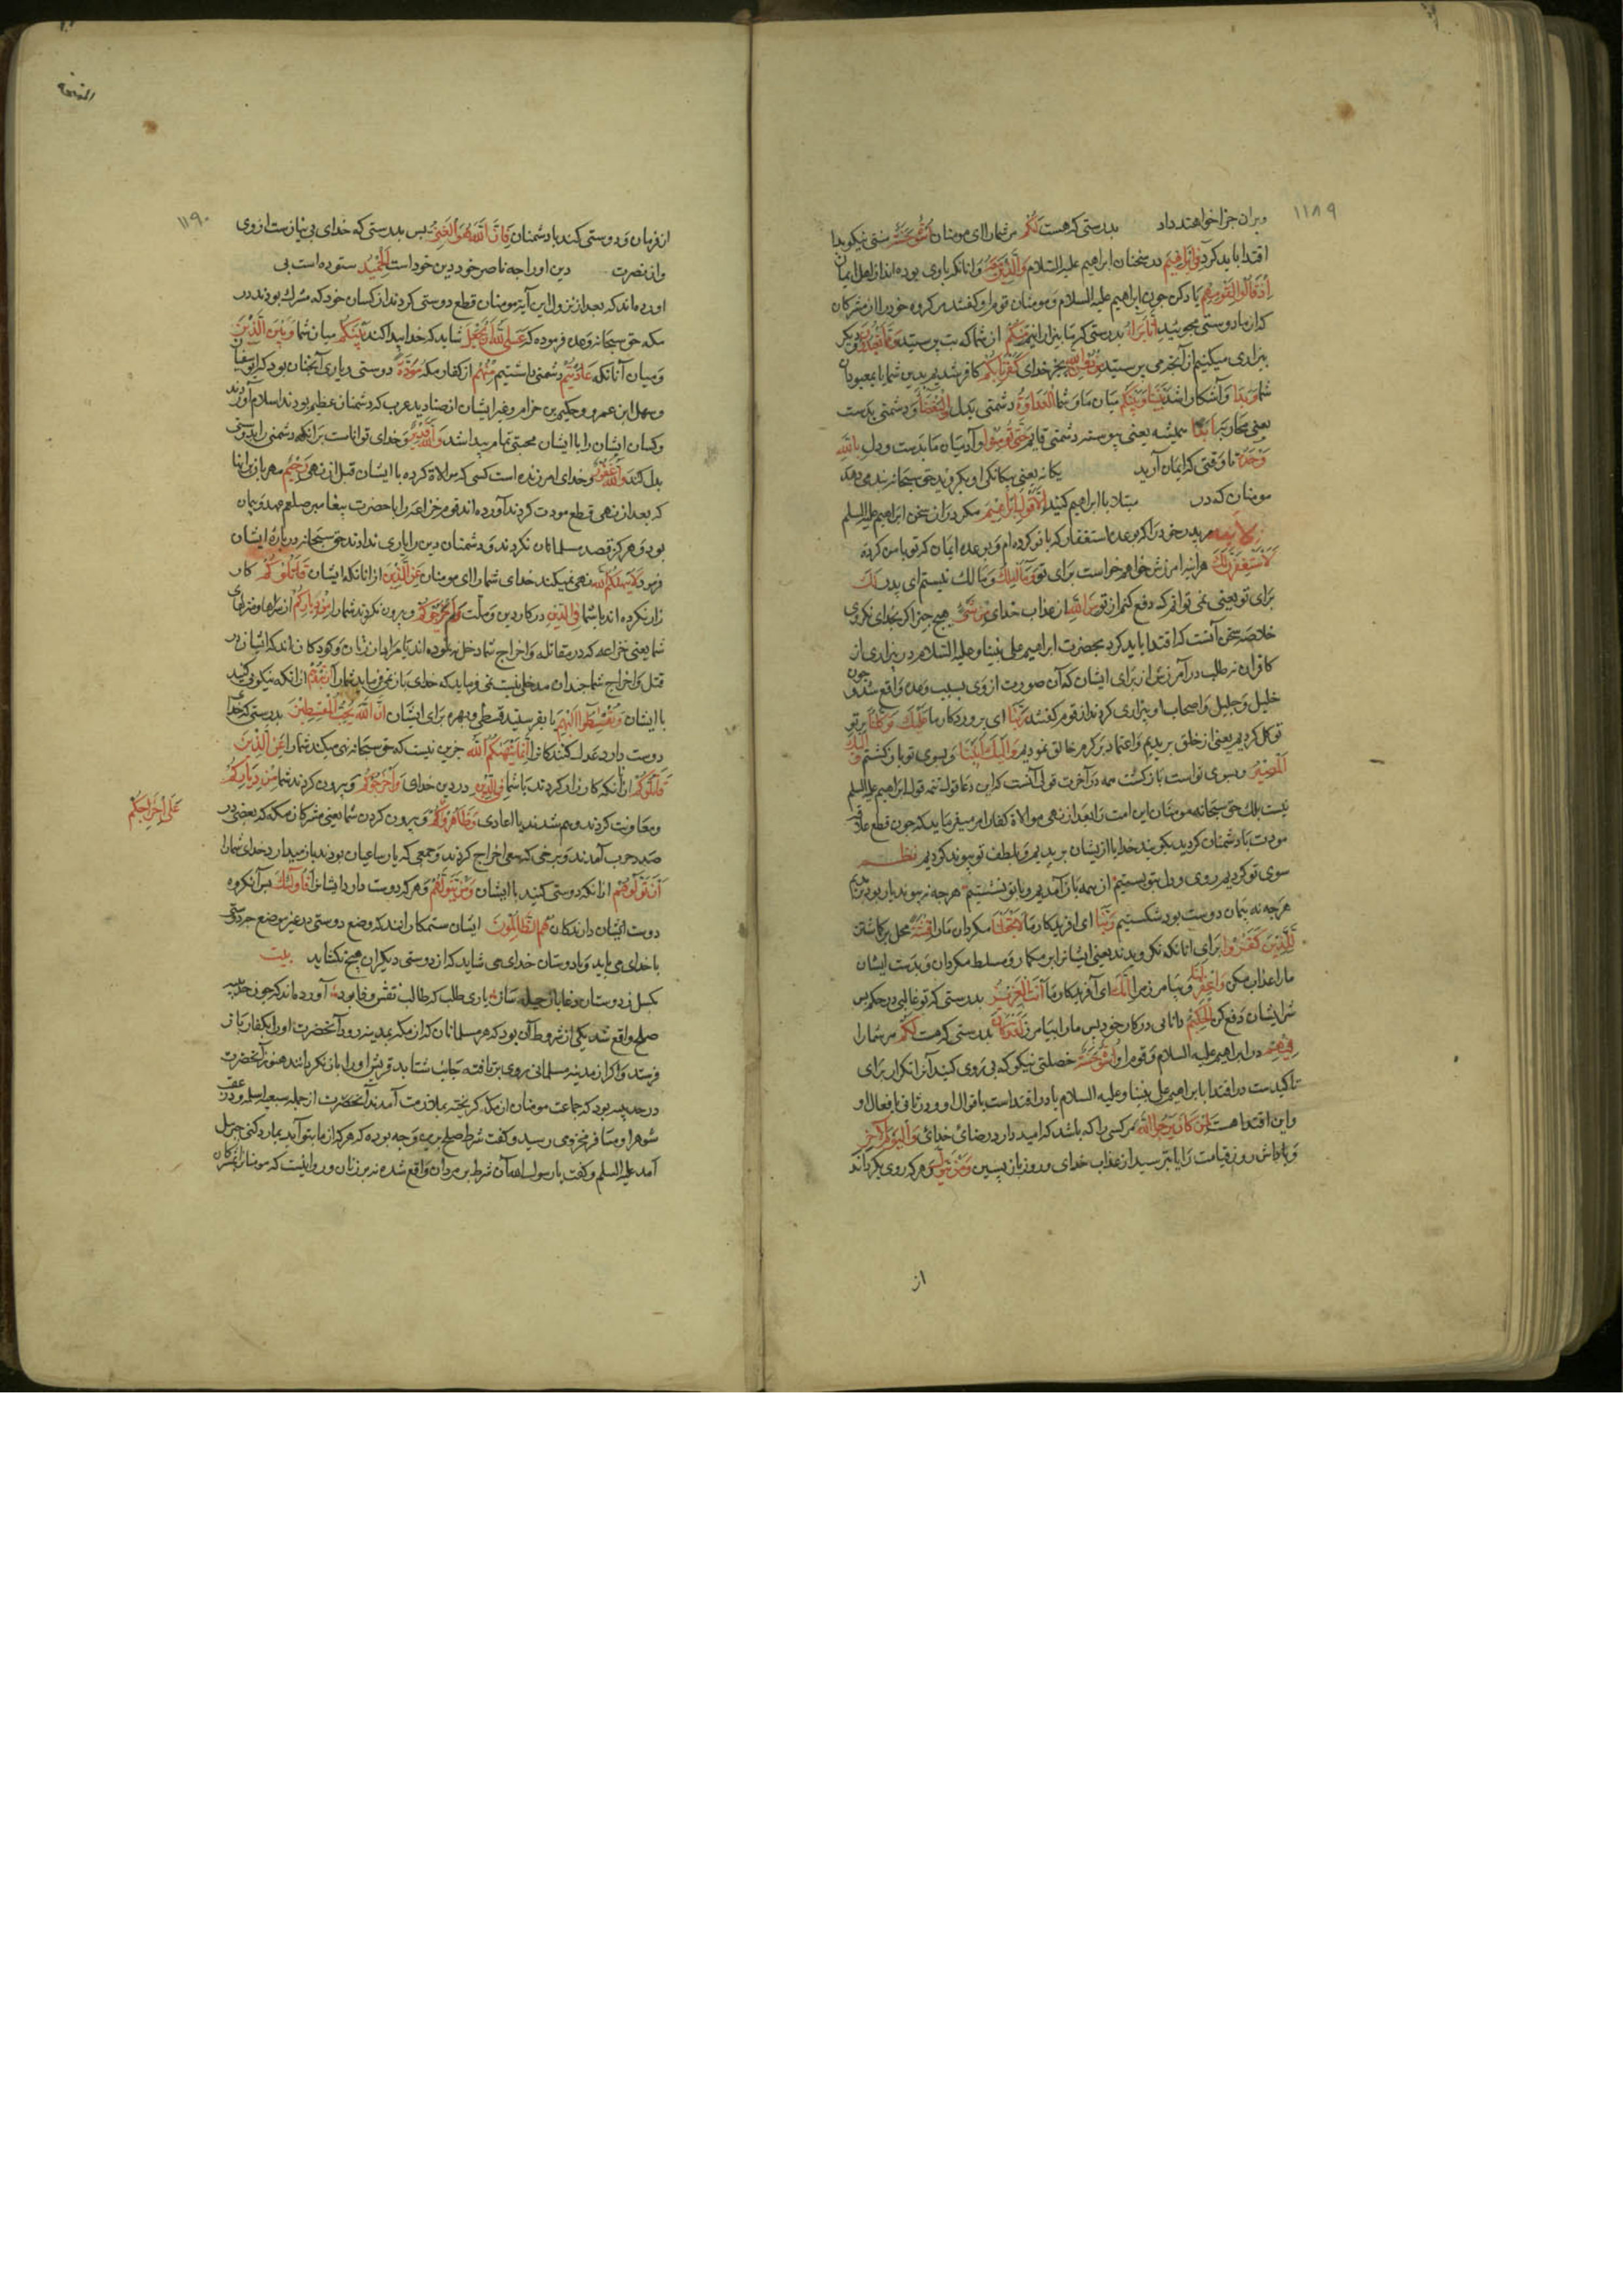 ۱۱۸۹
ویرا جزا خواهند داد بدرستی که هست لَكُمْ مر شما را ای مومنان اُسْوَةٌ حَسَنَةٌ سنتی نیکو بدا
اقتدا باید کرد فِي إِبْرَاهِيمَ در سخنان ابراهیم علیه السلام وَالَّذِينَ مَعَهُ و انانکه با وی بوده اند از اهل ایمان
إِذْ قَالُوا لِقَوْمِهِمْ یاد کن چون ابراهیم علیه السلام و مومنان قوم او گفتند مر کروه خود را از مشرکان
که از ما دوستی مجویید إِنَّا بُرَآءُ بدرستی که ما بیزارانیم مِنْكُمْ از شما که بت می پرستید وَمِمَّا تَعْبُدُونَ و دیگر
بیزاری میکنیم از آنچه می پرستید مِنْ دُونِ اللَّهِ بجز خدای كَفَرْنَا بِكُمْ کافر شدیم بدین شما یا بمعبودان
شما وَبَدَا و آشکارا شد بَيْنَنَا وَبَيْنَكُمُ میان ما و شما الْعَدَاوَةُ دشمنی بدل وَالْبَغْضَاءُ و دشمنی بدست
یعنی محاربه أَبَدًا همیشه یعنی پیوسته دشمنی قایم حَتَّى تُؤْمِنُوا و آن میان ما بدست و دل بِاللَّهِ
وَحْدَهُ تا وقتی که ایمان آرید یکانه یعنی بیکانکی او بکروید حق سبحانه پند می دهد
مومنان که در مبتلا با ابراهیم کنید إِلَّا قَوْلَ إِبْرَاهِيمَ مکر در آن سخن ابراهیم علیه السلم
لِأَبِيهِ مر پدر خود را که بوعده استغفار که با تو کرده ام و بوعده ایمان که تو با من کرده
لَأَسْتَغْفِرَنَّ لَكَ هر آینه امرزش خواهم خواست برای تو وَمَا أَمْلِكُ و مالك نیستم ای پدر لَكَ
برای تو یعنی نمی توانم که دفع کنم از تو مِنَ اللَّهِ از عذاب خدای مِنْ شَيْءٍ هیچ چیز اکر بخدای نکروی
خلاصه سخن آنست که اقتدا باید کرد بحضرت ابراهیم علی نبینا و علیه السلام در بیزاری از
کافران نه طلب در آمرزش از برای ایشان که آن صورت از وی بسبب وعده واقع شد و چون
خلیل و جلیل و اصحاب او بیزاری کردند از قوم گفتند رَبَّنَا ای پروردکار ما عَلَيْكَ تَوَكَّلْنَا بر تو
توکل کردیم یعنی از خلق بریدیم و اعتماد بر کرم خالق نمودیم وَإِلَيْكَ أَنَبْنَا و بسوی تو باز کشتیم وَإِلَيْكَ
الْمَصِيرُ و بسوی تو است باز کشت همه در آخرت قولی آنست که این دعا قوله تتمه قول ابراهیم علیه السلم
نیست بلك حق سبحانه مومنان این امت را بعد از نهی موالاة کفار امر میفرماید که چون قطع علاقه
مودت با دشمنان کردید بکویید خدایا از یشان بریدیم و بلطف تو پیوند کردیم نظم
سوی تو کردیم روی و دل بتو بستیم از همه باز آمدیم و با تو نشستیم هر چه نه پیوند یار بود بریدیم
هر چه نه پیمان دوست بود شکستیم رَبَّنَا ای افریدکار ما لَا تَجْعَلْنَا مکردان ما را فِتْنَةً محل بر کاشتن
لِلَّذِينَ كَفَرُوا برای انانکه نکرویدند یعنی ایشانرا بر ما مکمار و مسلط مکردان و بدست ایشان
ما را عذاب مکن وَاغْفِرْ لَنَا و بیامرز مرا رَبَّنَا إِنَّكَ ای آفریدکار ما أَنْتَ الْعَزِيزُ بدرستی که تو غالبی در حکم پس
شر ایشان دفع کن الْحَكِيمُ دانایی در کار خود پس ما را بیامرز لَقَدْ كَانَ بدرستی که هست لَكُمْ مر شما را
فِيهِمْ در ابراهیم علیه السلام و قوم او أُسْوَةٌ حَسَنَةٌ خصلتی نیکو که پی روی کنید آنرا تکرار برای
تاکیدست در اقتدا بابراهیم علی نبینا و علیه السلام یا در اول اقتداست باقوال او و در ثانی بافعال او
و این اقتدا هست لِمَنْ كَانَ يَرْجُو اللَّهَ مر کسی را که باشد که امید دارد رضای خدای وَالْيَوْمَ الْآخِرَ
و پاداش روز قیامت را یا بترسد از عذاب خدای و روز باز پسین وَمَنْ يَتَوَلَّ و هر که روی بکرداند
از
۱۱۹۰
از فرمان و دوستی کند با دشمنان فَإِنَّ اللَّهَ هُوَ الْغَنِيُّ پس بدرستی که خدای بی نیازست از وی
و از نصرت دین او را چه ناصر خود دین خود است الْحَمِيدُ ستوده است بی
اورده اند که بعد از نزول این آیه مومنان قطع دوستی کردند از کسان خود که مشرك بودند در
مکه حق سبحانه وعده فرموده که عَسَى اللَّهُ أَنْ يَجْعَلَ شاید که خدا پیدا کند بَيْنَكُمْ میان شما وَبَيْنَ الَّذِينَ
و میان آنانکه عَادَيْتُمْ دشمنی داشتیم مِنْهُمْ از کفار مکه مَوَدَّةً دوستی و یاری آنچنان بود که ابو سفیان
و سهل ابن عمرو و حکیم بن حزام و غیر ایشان از صنادید عرب که دشمنان عظیم بودند اسلام آوردند
و کسان ایشان را با ایشان محبتی تمام پیدا شد وَاللَّهُ قَدِيرٌ و خدای تواناست بر آنکه دشمنی را بدوستی
بدل کند وَاللَّهُ غَفُورٌ و خدای امرزنده است کسی که موالاة کرده با ایشان قبل از نهی رَحِيمٌ مهربان بر انها
که بعد از نهی قطع مودت کردند آورده اند قوم خزاعه را با حضرت پیغامبر صلعم عهد و پیمان
بود و هرکز قصد مسلمانان نکردند و دشمنان دین را یاری ندادند حق سبحانه در باره ایشان
فرمود لَا يَنْهَاكُمُ اللَّهُ نهی نمیکند خدای شما را ای مومنان عَنِ الَّذِينَ از انانکه ایشان لَمْ يُقَاتِلُوكُمْ کار
زار نکرده اند با شما فِي الدِّينِ در کار دین و ملت وَلَمْ يُخْرِجُوكُمْ و بیرون نکردند شما را مِنْ دِيَارِكُمْ از سراها و منزلهای
شما یعنی خزاعه که در مقاتله و اخراج شما دخل ننموده اند یا مراد از زنان و کودکان اند که ایشان در
قتل و اخراج شما چندان مدخلی نیست می فرماید که خدای باز نمی دارد شما را أَنْ تَبَرُّوهُمْ از انکه نیکویی کنید
با ایشان وَتُقْسِطُوا إِلَيْهِمْ یا بفرستید قسطی و بهره برای ایشان إِنَّ اللَّهَ يُحِبُّ الْمُقْسِطِينَ بدرستی که خدا
دوست دارد عدل کنندکانرا إِنَّمَا يَنْهَاكُمُ اللَّهُ جزین نیست که حق سبحانه نهی میکند شما را عَنِ الَّذِينَ
قَاتَلُوكُمْ از انانکه کارزار کردند با شما فِي الدِّينِ در دین خدای وَأَخْرَجُوكُمْ و بیرون کردند شما مِنْ دِيَارِكُمْ
و معاونت کردند و هم شدند با اعادی وَظَاهَرُوا و بیرون کردن شما یعنی مشرکان مکه که بعضی در
عَلَى إِخْرَاجِكُمْ
صدد حرب آمدند و برخی که سعی اخراج کردند و جمعی که یار ساعیان بودند باز میدارد خدای شما را
أَنْ تَوَلَّوْهُمْ از انکه دوستی کنید با ایشان وَمَنْ يَتَوَلَّهُمْ و هر که دوست دارد ایشانرا فَأُولَئِكَ پس آنکروه
دوست ایشان دارندکان هُمُ الظَّالِمُونَ ایشان ستمکارانند که وضع دوستی در غیر موضع خود دوستی
با خدای می باید و با دوستان خدای می شاید که از دوستی دیگران هیچ نکشاید بیت
بکسل ز دوستان دغا باز حیله ساز یاری طلب که طالب نقش وفا بود آورده اند که چون حدیبیه
صلح واقع شد یکی از شروط آن بود که هر مسلمانان که از مکه بمدینه رود آنحضرت او را بکفار باز
فرستد و اکر از مدینه مسلمانی روی بر تافته جانب شتابد قریش او را باز نکردانند هنوز آنحضرت
در حدیبیه بود که جماعت مومنان از مکه کریخته بملازمت آمدند آنحضرت از جمله سبیعه اسلمیه و در عقب
شوهر او مسافر مخزومی رسید و گفت شرط صلح برین وجه بوده که هر که از ما بتو آید بما رد کنی جبریل
آمد علیه السلم و گفت یا رسول الله آن شرط بر مردان واقع شده نه بر زنان و روا نیست که مومنانرا بمشرکان